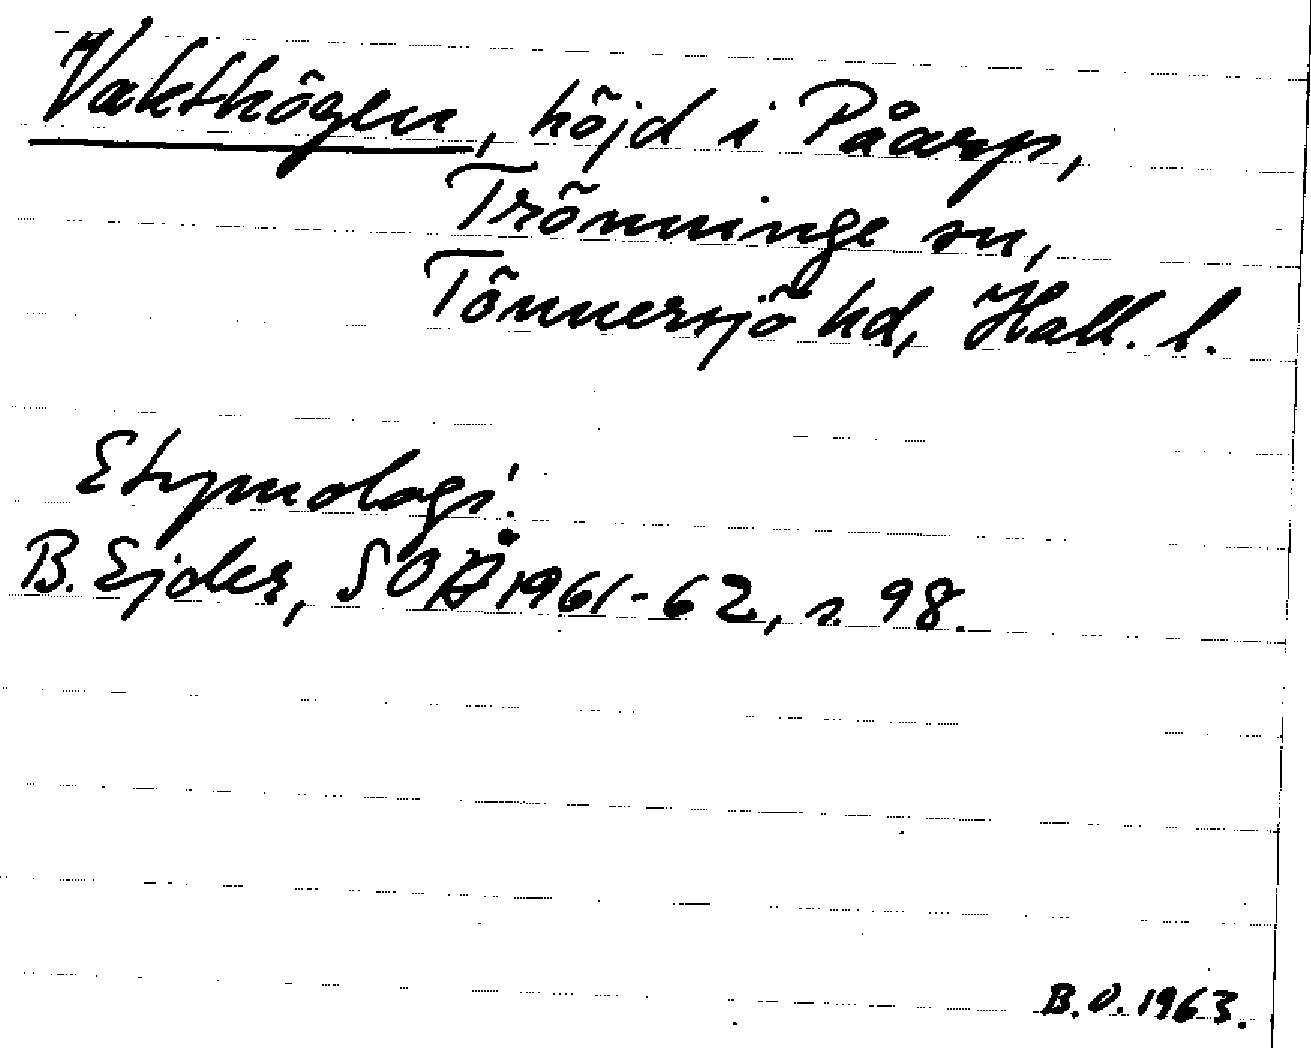 Vakthögen, höjd i Påarp,
Trönninge sn,
Tönnersjö hd, Hall. l.
Etymologi:
B. Ejder, SOÅ 1961-62, s. 98.
B.O. 1963.